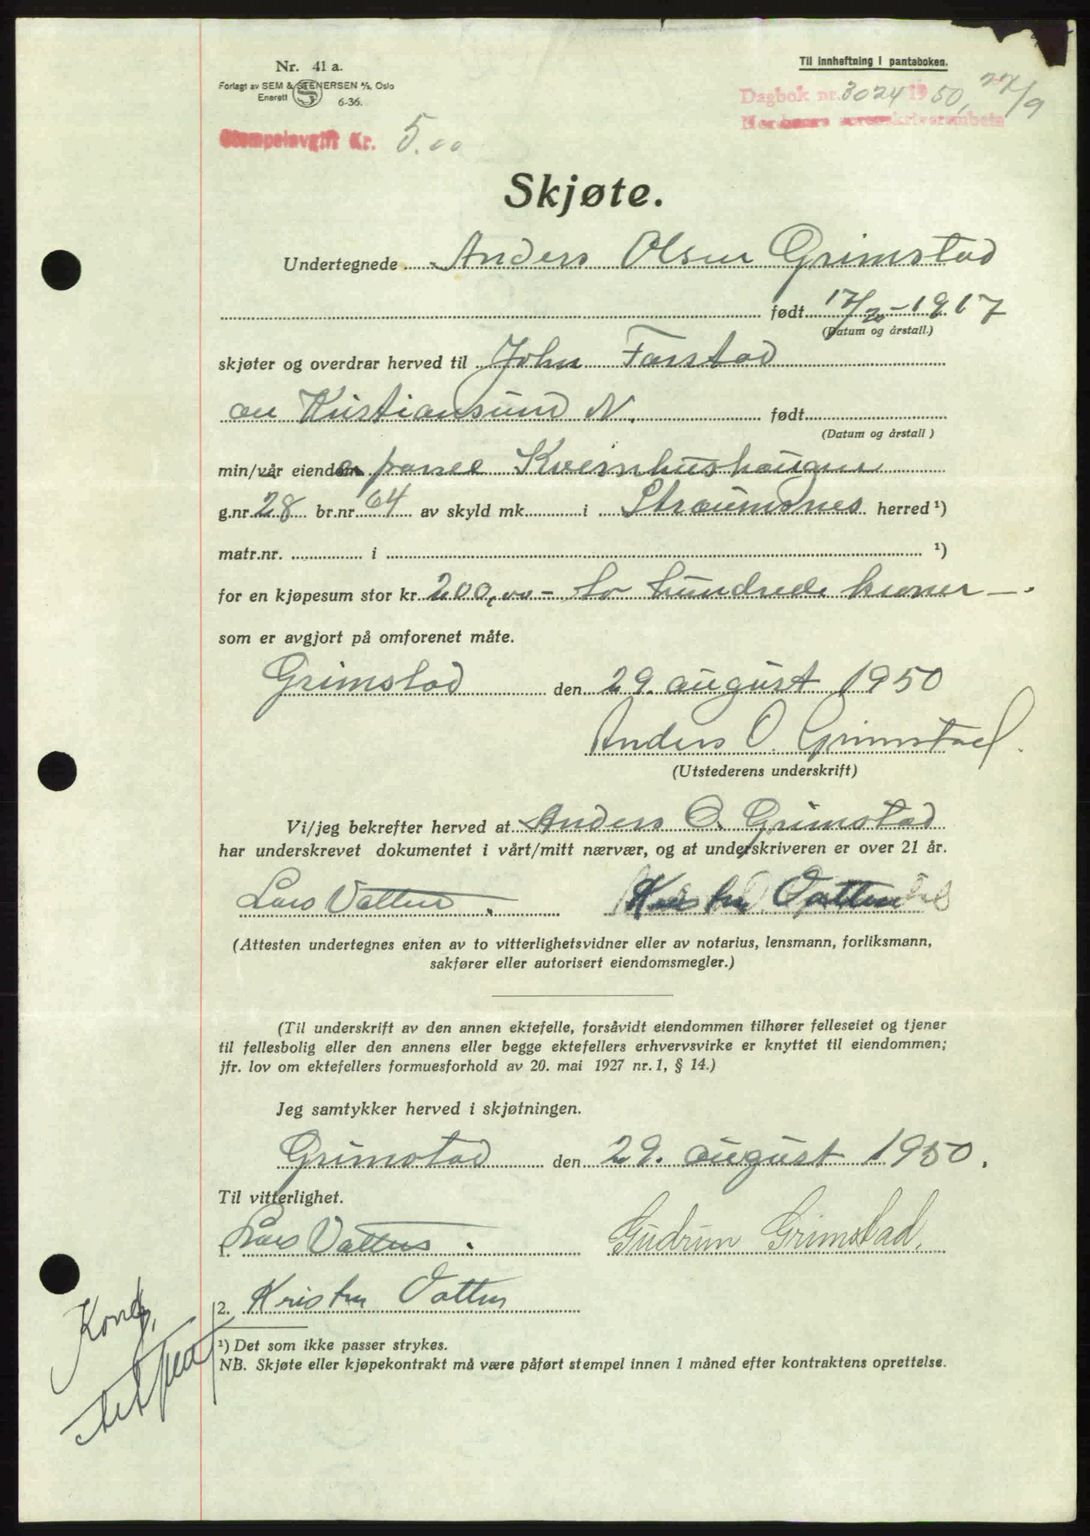 Nr. 41 a.
Forlagt av SEM & STENERSEN A/S, Oslo
Enerett 6-36.
Til innheftning i panteboken.
Dagbok nr. 3024 1950, 27/9
Nordmøre sorenskriverembete
Stempelavgift Kr. 5.00
Skjøte.
Undertegnede Anders Olsen Grimstad
født 1917
(Datum og årstall.)
skjøter og overdrar herved til John Farstad
av Kristiansund N. født
(Datum og årstall)
min/vår eiendom parsel Kvernhushaugen
g.nr. 28 br.nr. 64 av skyld mk. i Straumsnes herred ¹)
matr.nr. i ¹)
for en kjøpesum stor kr 200,00 - to hundrede kroner -.
som er avgjort på omforenet måte.
Grimstad den 29. august 1950
Anders O. Grimstad.
(Utstederens underskrift)
Vi/jeg bekrefter herved at Anders O. Grimstad
har underskrevet dokumentet i vårt/mitt nærvær, og at underskriveren er over 21 år.
Lars Vatten. Kristen Vatten
(Attesten undertegnes enten av to vitterlighetsvidner eller av notarius, lensmann, forliksmann,
sakfører eller autorisert eiendomsmegler.)
(Til underskrift av den annen ektefelle, forsåvidt eiendommen tilhører felleseiet og tjener
til fellesbolig eller den annens eller begge ektefellers erhvervsvirke er knyttet til eiendommen;
jfr. lov om ektefellers formuesforhold av 20. mai 1927 nr. 1, § 14.)
Jeg samtykker herved i skjøtningen.
Grimstad den 29. august 1950.
Til vitterlighet.
1. Lars Vatten. Gudrun Grimstad.
2. Kristen Vatten
¹) Det som ikke passer strykes.
NB. Skjøte eller kjøpekontrakt må være påført stempel innen 1 måned efter kontraktens oprettelse.